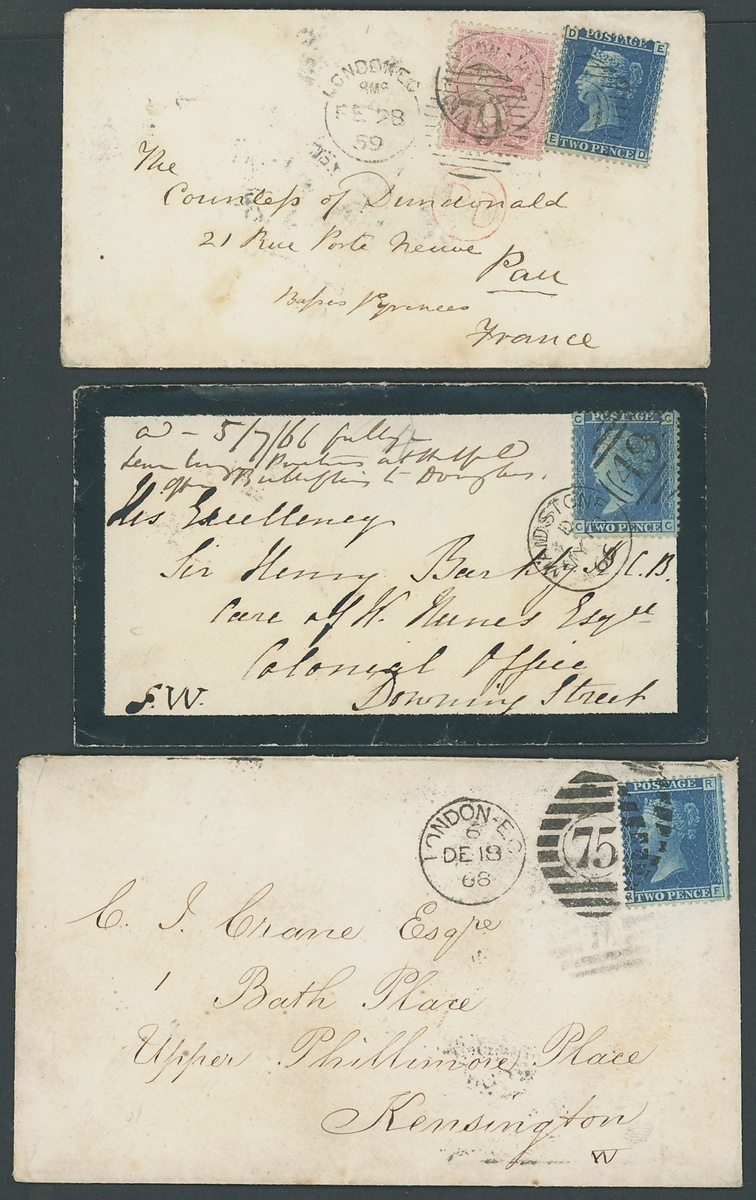 LONDON-EC
8MS
FE 28
59
79
POSTAGE
TWO PENCE
D E
E D
PD
The
Countess of Dundonald
21 Rue Porte Neuve
Pau
Basses Pyrenees
France
5/7/66 fully
to Douglas.
POSTAGE
C C
TWO PENCE
C C
49
MAIDSTONE
D
His Excellency
Sir Henry Barkly K.C.B.
Care of H. Nunes Esqre
Colonial Office
S.W.
Downing Street
LONDON-E.C
6
DE 18
68
75
POSTAGE R
TWO PENCE F
C. J. Crane Esqre
1 Bath Place
Upper Phillimore Place
Kensington
W